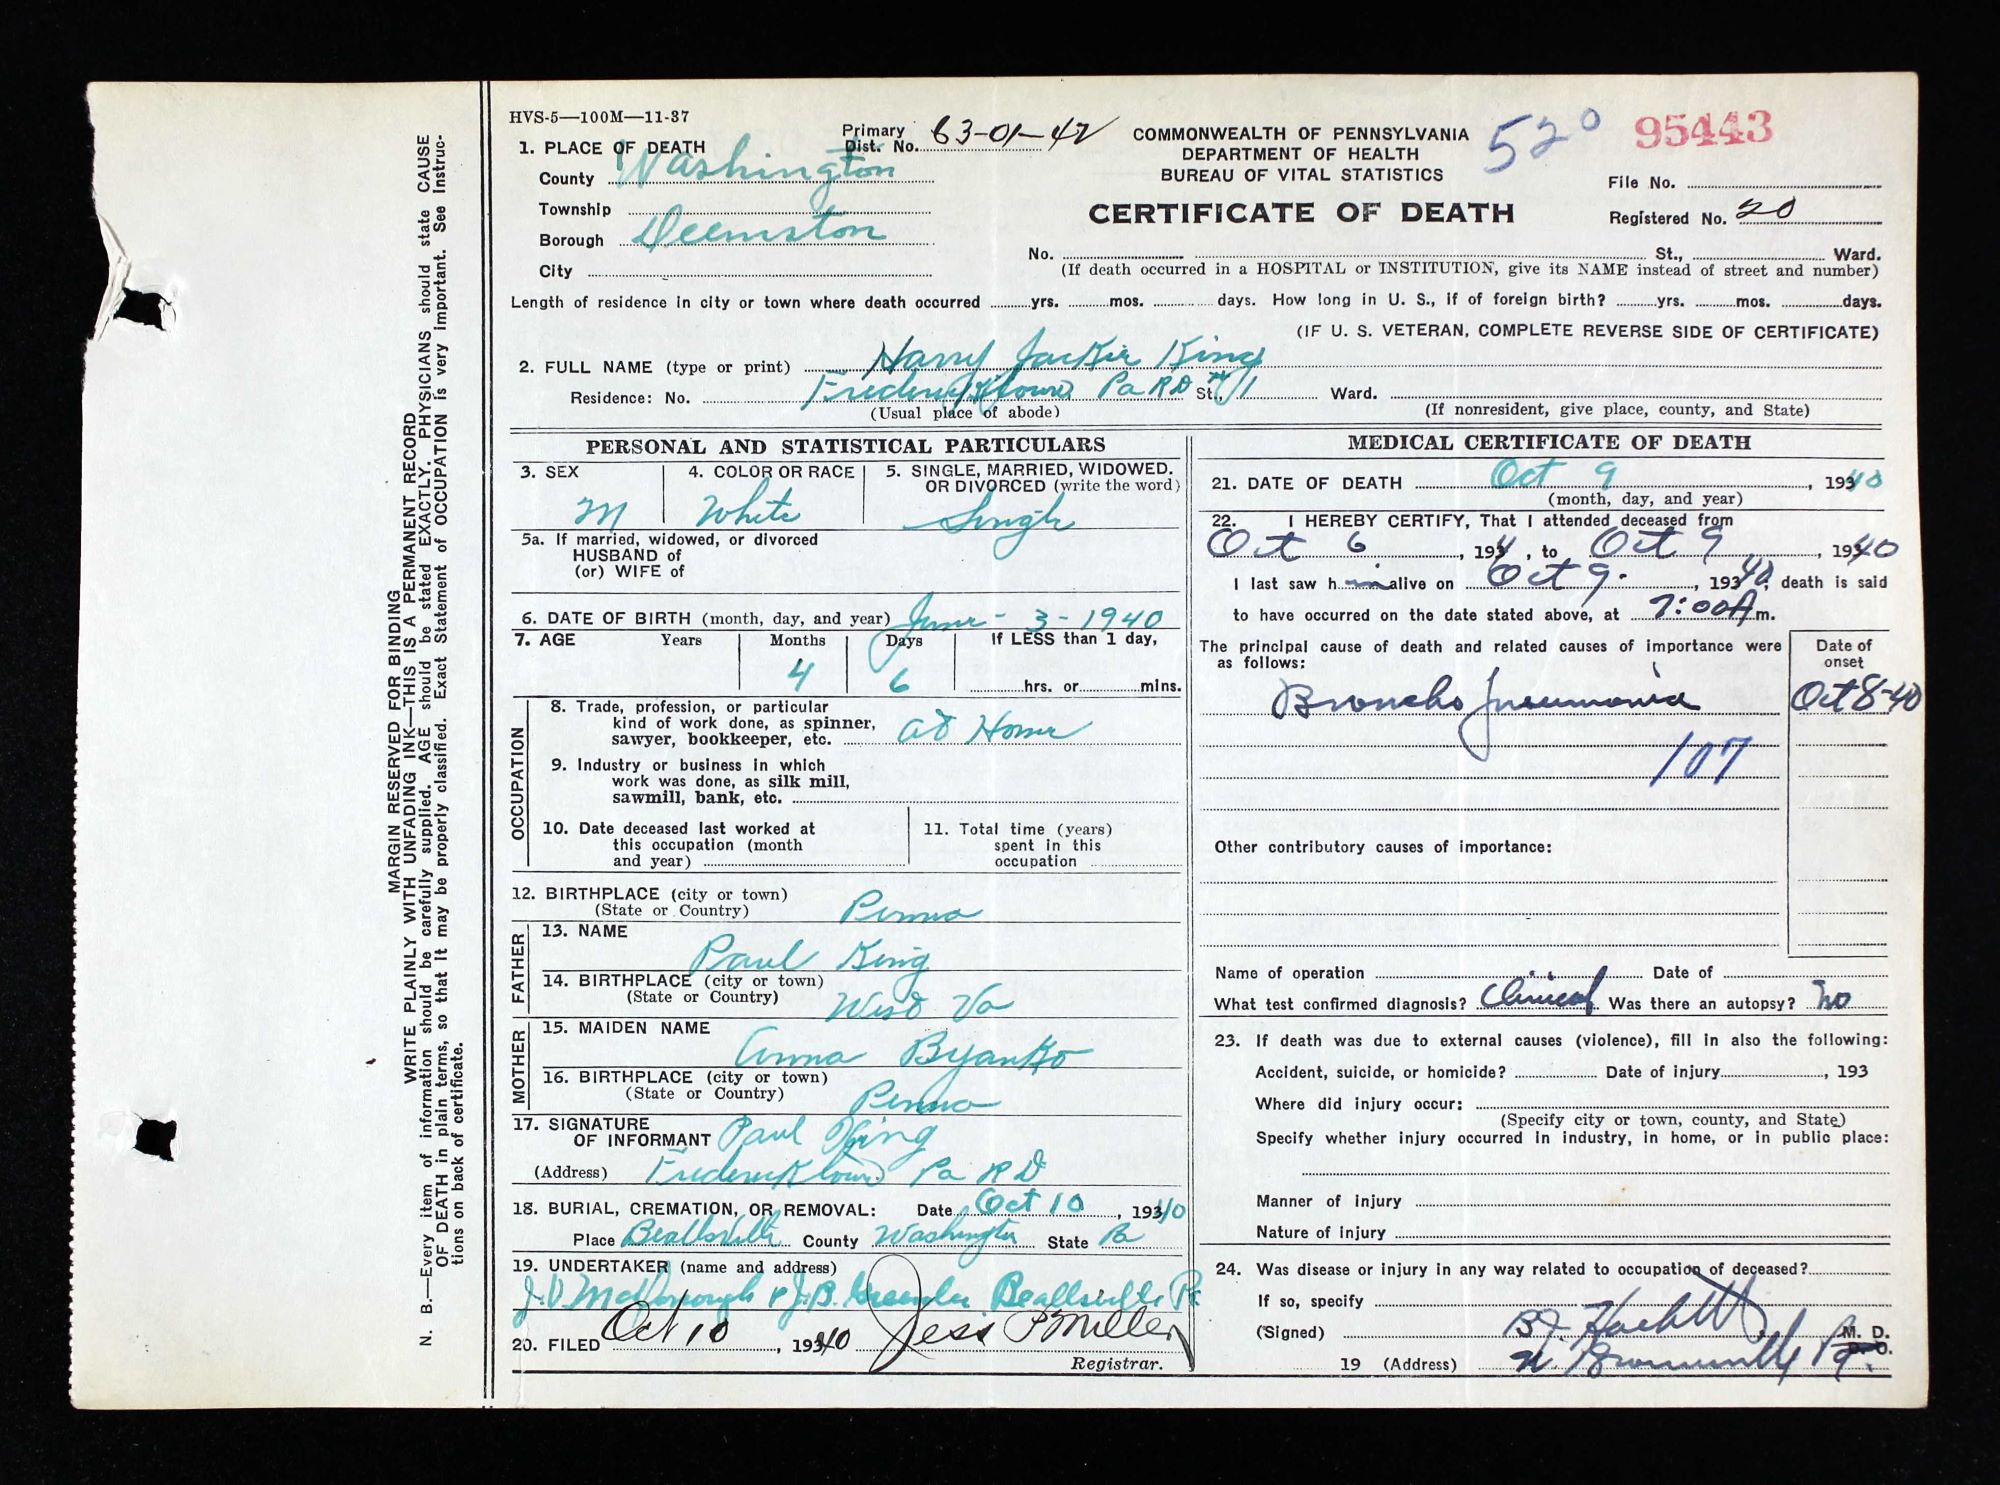 HVS-5—100M—11-37
Primary Dist. No. 63-01-42
COMMONWEALTH OF PENNSYLVANIA
DEPARTMENT OF HEALTH
BUREAU OF VITAL STATISTICS
CERTIFICATE OF DEATH
520
95443
File No.
Registered No. 20
1. PLACE OF DEATH
County Washington
Township
Borough Deemston
City
No. St., Ward.
(If death occurred in a HOSPITAL or INSTITUTION, give its NAME instead of street and number)
Length of residence in city or town where death occurred yrs. mos. days. How long in U. S., if of foreign birth? yrs. mos. days.
(IF U. S. VETERAN, COMPLETE REVERSE SIDE OF CERTIFICATE)
2. FULL NAME (type or print) Harry Jackie King
Residence: No. Fredericktown Pa RD St., #1 Ward.
(Usual place of abode)
(If nonresident, give place, county, and State)
PERSONAL AND STATISTICAL PARTICULARS
3. SEX
M
4. COLOR OR RACE
White
5. SINGLE, MARRIED, WIDOWED.
OR DIVORCED (write the word)
Single
5a. If married, widowed, or divorced
HUSBAND of
(or) WIFE of
6. DATE OF BIRTH (month, day, and year) June - 3 - 1940
7. AGE Years Months Days If LESS than 1 day,
4 6 hrs. or mins.
OCCUPATION
8. Trade, profession, or particular
kind of work done, as spinner,
sawyer, bookkeeper, etc. at Home
9. Industry or business in which
work was done, as silk mill,
sawmill, bank, etc.
10. Date deceased last worked at
this occupation (month
and year)
11. Total time (years)
spent in this
occupation
12. BIRTHPLACE (city or town)
(State or Country) Penna
FATHER
13. NAME
Paul King
14. BIRTHPLACE (city or town)
(State or Country) West Va
MOTHER
15. MAIDEN NAME
Anna Byanko
16. BIRTHPLACE (city or town)
(State or Country) Penna
17. SIGNATURE
OF INFORMANT Paul King
(Address) Fredericktown Pa RD
18. BURIAL, CREMATION, OR REMOVAL: Date Oct 10, 19340
Place Beallsville County Washington State Pa
19. UNDERTAKER (name and address)
J.V. & J.B. Beallsville Pa
20. FILED Oct 10, 19340 Jess P Miller
Registrar.
MEDICAL CERTIFICATE OF DEATH
21. DATE OF DEATH Oct 9, 19340
(month, day, and year)
22. I HEREBY CERTIFY, That I attended deceased from
Oct 6, 194, to Oct 9, 19340
I last saw h im alive on Oct 9., 19340, death is said
to have occurred on the date stated above, at 7:00 A m.
The principal cause of death and related causes of importance were
as follows:
Date of
onset
Broncho pneumonia Oct 8-40
107
Other contributory causes of importance:
Name of operation Date of
What test confirmed diagnosis? Clinical Was there an autopsy? no
23. If death was due to external causes (violence), fill in also the following:
Accident, suicide, or homicide? Date of injury, 193
Where did injury occur:
(Specify city or town, county, and State)
Specify whether injury occurred in industry, in home, or in public place:
Manner of injury
Nature of injury
24. Was disease or injury in any way related to occupation of deceased?
If so, specify
(Signed) Hackett M. D.
D. O.
19 (Address) Pa.
MARGIN RESERVED FOR BINDING
WRITE PLAINLY WITH UNFADING INK—THIS IS A PERMANENT RECORD
N. B.—Every item of information should be carefully supplied. AGE should be stated EXACTLY. PHYSICIANS should state CAUSE
OF DEATH in plain terms, so that it may be properly classified. Exact Statement of OCCUPATION is very important. See Instruc-
tions on back of certificate.